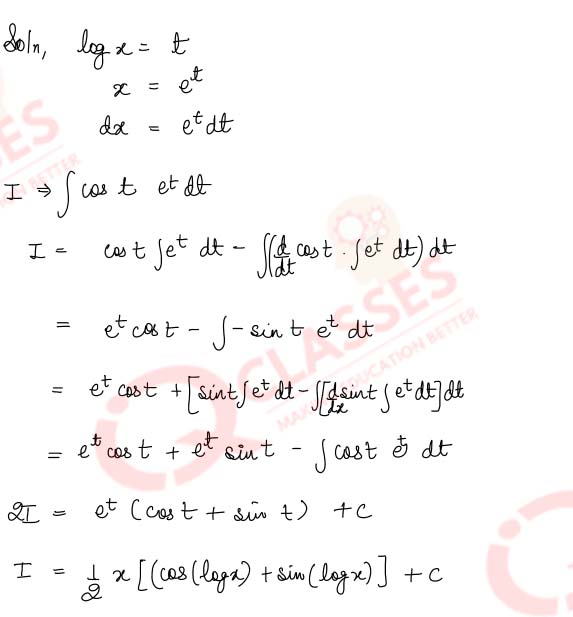 Soln, log x = t
x = e^t
dx = e^t dt
I ⇒ ∫ cos t e^t dt
I = cos t ∫e^t dt - ∫(d/dt cos t . ∫e^t dt) dt
= e^t cos t - ∫ - sin t e^t dt
= e^t cos t + [sin t ∫e^t dt - ∫[d/dx sin t ∫e^t dt] dt
= e^t cos t + e^t sin t - ∫ cos t e^t dt
2I = e^t (cos t + sin t) + c
I = 1/2 x [(cos(log x) + sin(log x)] + c
CLASSES